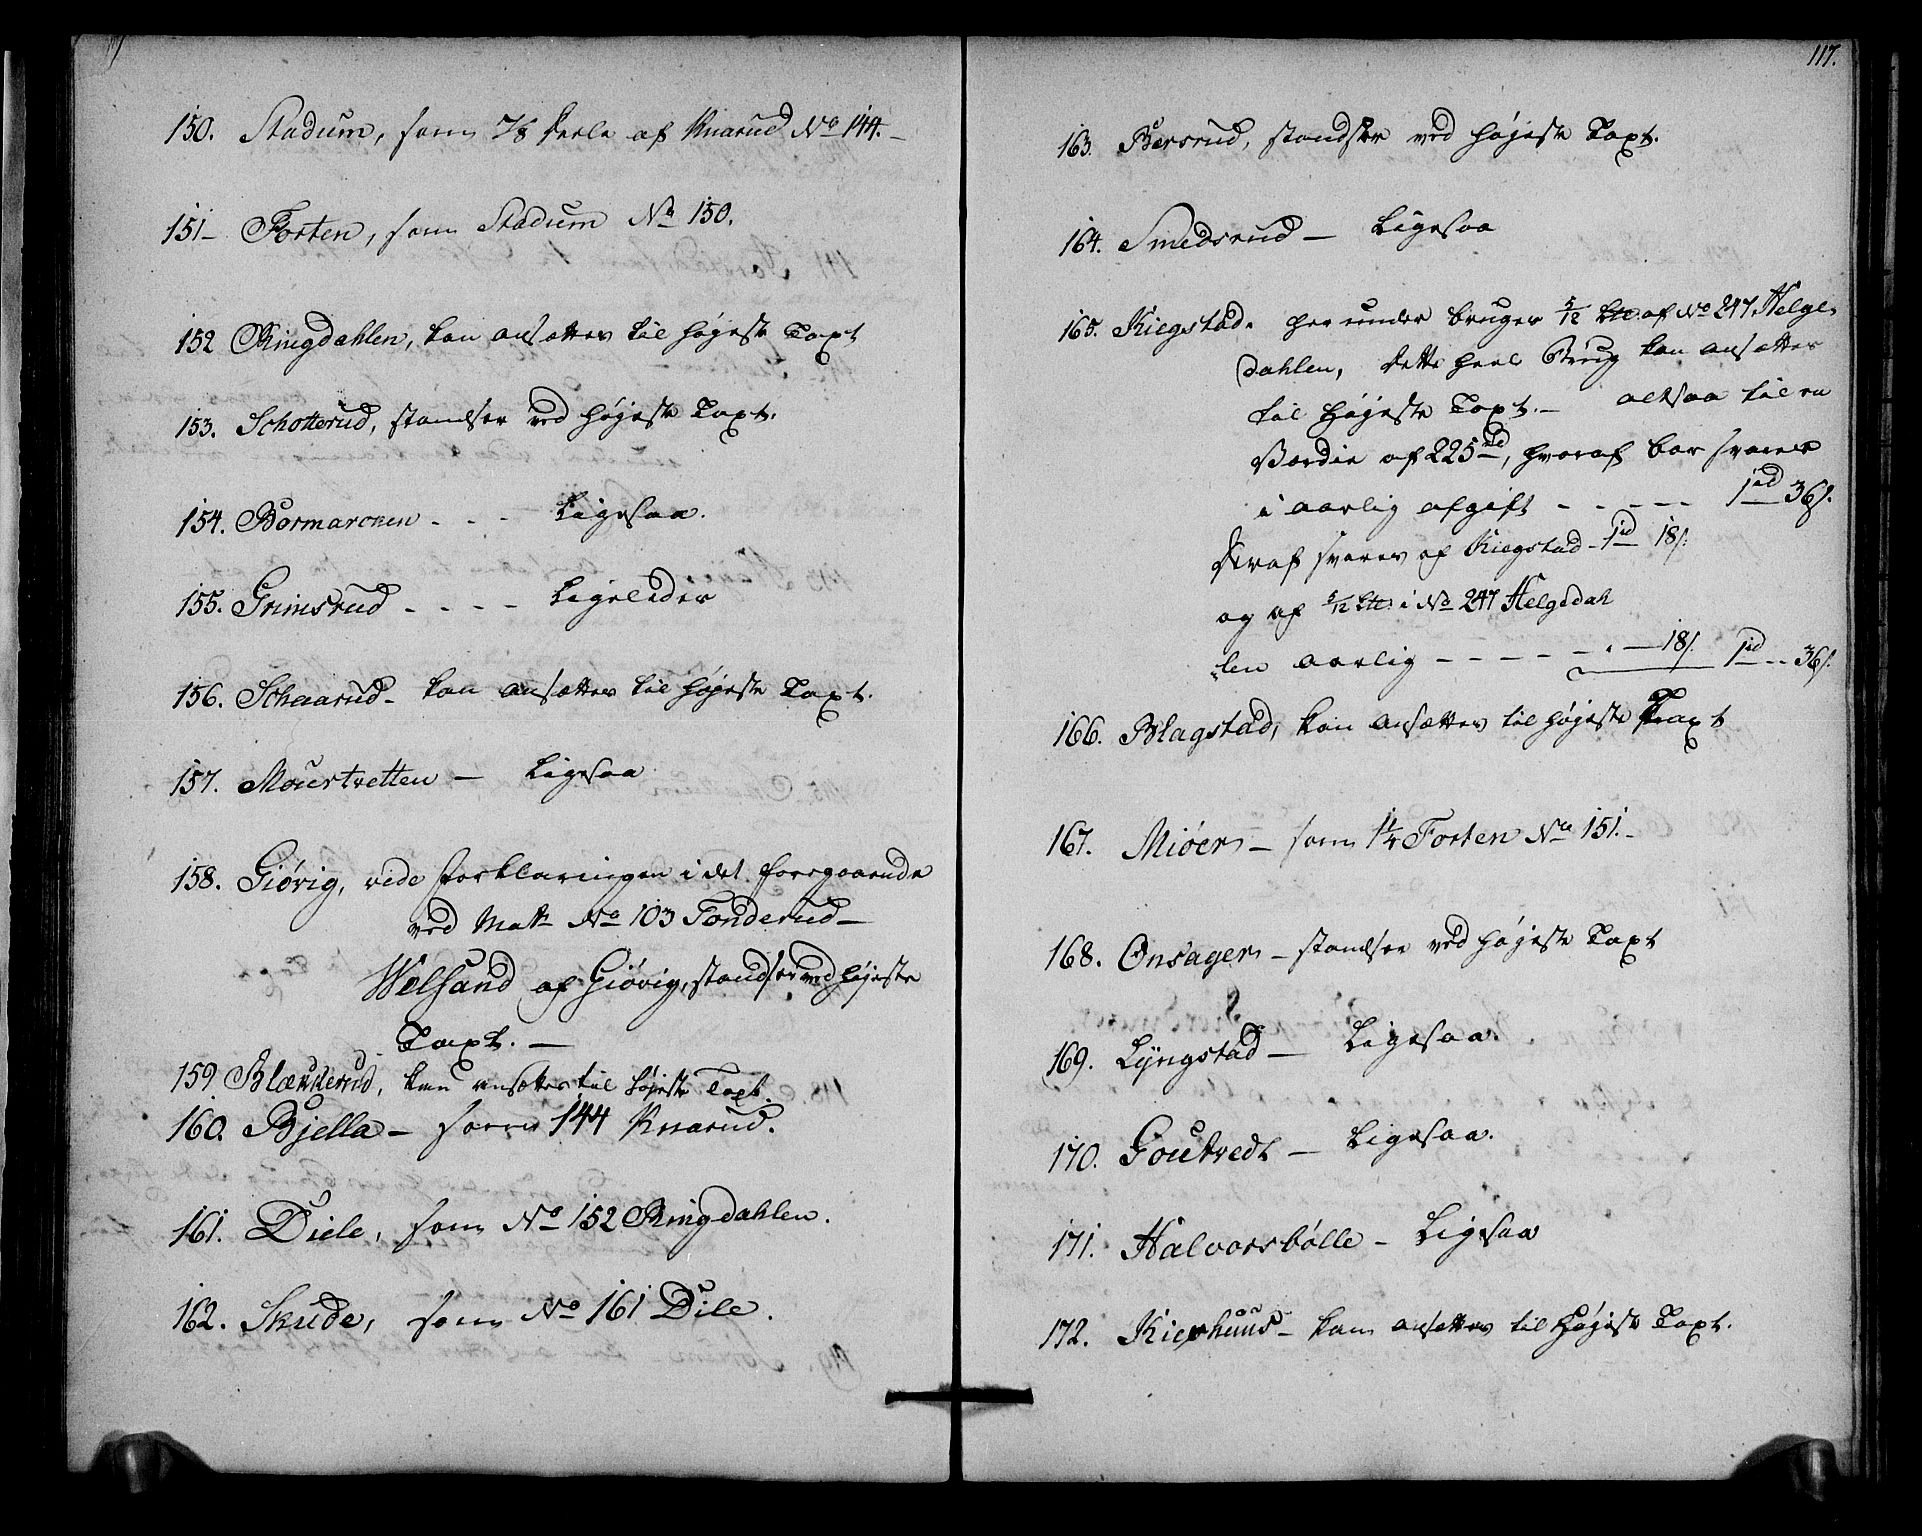 150. Stadum, som 7/8 Deele af Knarud No 144. –
151 – Forten, som Stadum No 150.
152 Ringdahlen, kan ansættes til højeste Taxt
153. Schotterud, standser ved højeste Taxt.
154. Bormarcken - - - Ligesaa.
155. Grimsrud - - - - Ligeledes
156. Schaarud – kan ansættes til højeste Taxt.
157. Moustvetten – Ligesaa
158. Giøvig, vide forklaringen i det foregaaende
ved Matr No 103 Tonderud –
Welsand af Giøvig, standser ved højeste
Taxt. –
159. Blækkerud, kan ansættes til højeste Taxt.
160. Bjella – som 144 Knarud.
161. Diele, som No 152 Ringdahlen.
162. Skude, som No 161 Dile.
117.
163. Bersrud, standser ved højeste Taxt.
164. Smedsrud – Ligesaa
165. Kiegstad. herunder bruges 5/12 af No 247 Helge-
dahlen, dette heele Brug kan ansættes
til højeste Taxt. – altsaa til en
Værdie af 225 rd, hvoraf bør svares
i aarlig afgift - - - - - 1 rd 36 s.
deraf svares af Kiegstad - 1 rd 18 s.
og af 5/12 i No 247 Helgedah
len aarlig - - - - - - 18 s. 1 rd - - 36 s.
166. Blagstad, kan ansættes til højeste Taxt
167. Miøen – som 1 1/4 Forten No 151. –
168. Onsager – standser ved højeste Taxt
169. Lyngstad – Ligesaa.
170. Goutvedt – Ligesaa.
171. Halvorsbølle – Ligesaa
172. Kierhuus – kan ansættes til højeste Taxt.